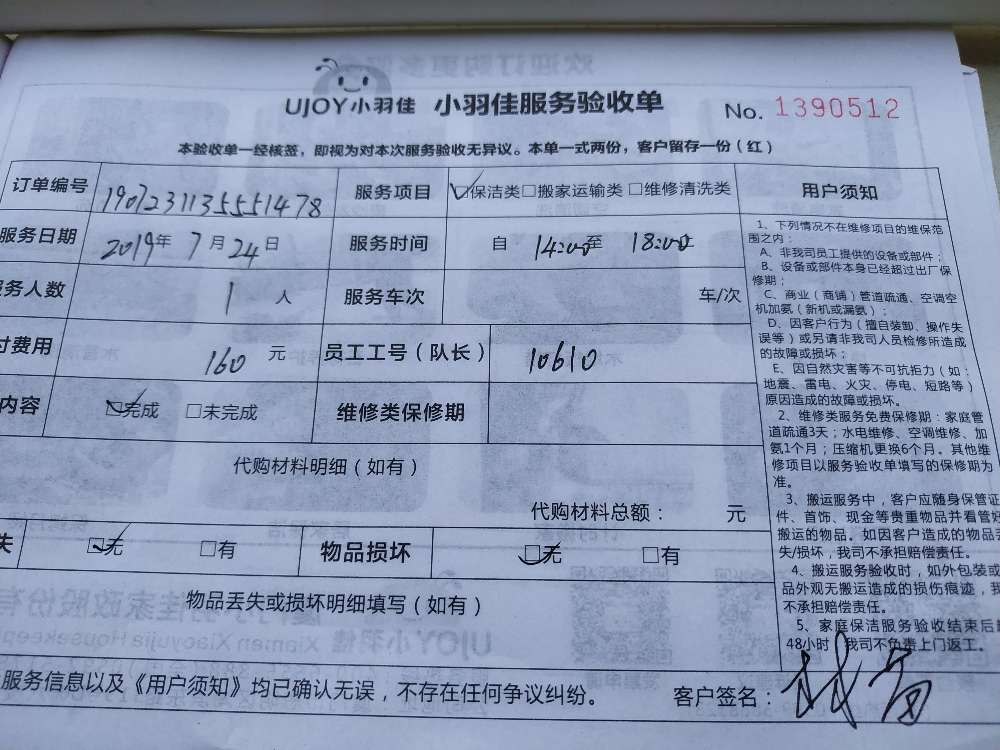 UJOY小羽佳 小羽佳服务验收单 No. 1390512
本验收单一经核签，即视为对本次服务验收无异议。本单一式两份，客户留存一份（红）
订单编号 19072311355551478 服务项目 ☑保洁类□搬家运输类□维修清洗类
服务日期 2019年 7月 24日 服务时间 自 14:00至 18:00
务人数 1 人 服务车次 车/次
付费用 160 元 员工工号（队长） 10610
内容 ☑完成 □未完成 维修类保修期
代购材料明细（如有）
代购材料总额： 元
失 ☑无 □有 物品损坏 ☑无 □有
物品丢失或损坏明细填写（如有）
服务信息以及《用户须知》均已确认无误，不存在任何争议纠纷。 客户签名：
用户须知
1、下列情况不在维修项目的维保范
围之内：
A、非我司员工提供的设备或部件；
B、设备或部件本身已经超过出厂保
修期；
C、商业（商铺）管道疏通、空调空
机加氨（新机或漏氨）；
D、因客户行为（擅自装卸、操作失
误等）或另请非我司人员检修所造成
的故障或损坏；
E、因自然灾害等不可抗拒力（如：
地震、雷电、火灾、停电、短路等）
原因造成的故障或损坏。
2、维修类服务免费保修期：家庭管
道疏通3天；水电维修、空调维修、加
氨1个月；压缩机更换6个月。其他维
修项目以服务验收单填写的保修期为
准。
3、搬运服务中，客户应随身保管证
件、首饰、现金等贵重物品并看管好
搬运的物品。如因客户造成的物品丢
失/损坏，我司不承担赔偿责任。
4、搬运服务验收时，如外包装或
品外观无搬运造成的损伤痕迹，我
不承担赔偿责任。
5、家庭保洁服务验收结束后超
48小时，我司不负责上门返工。